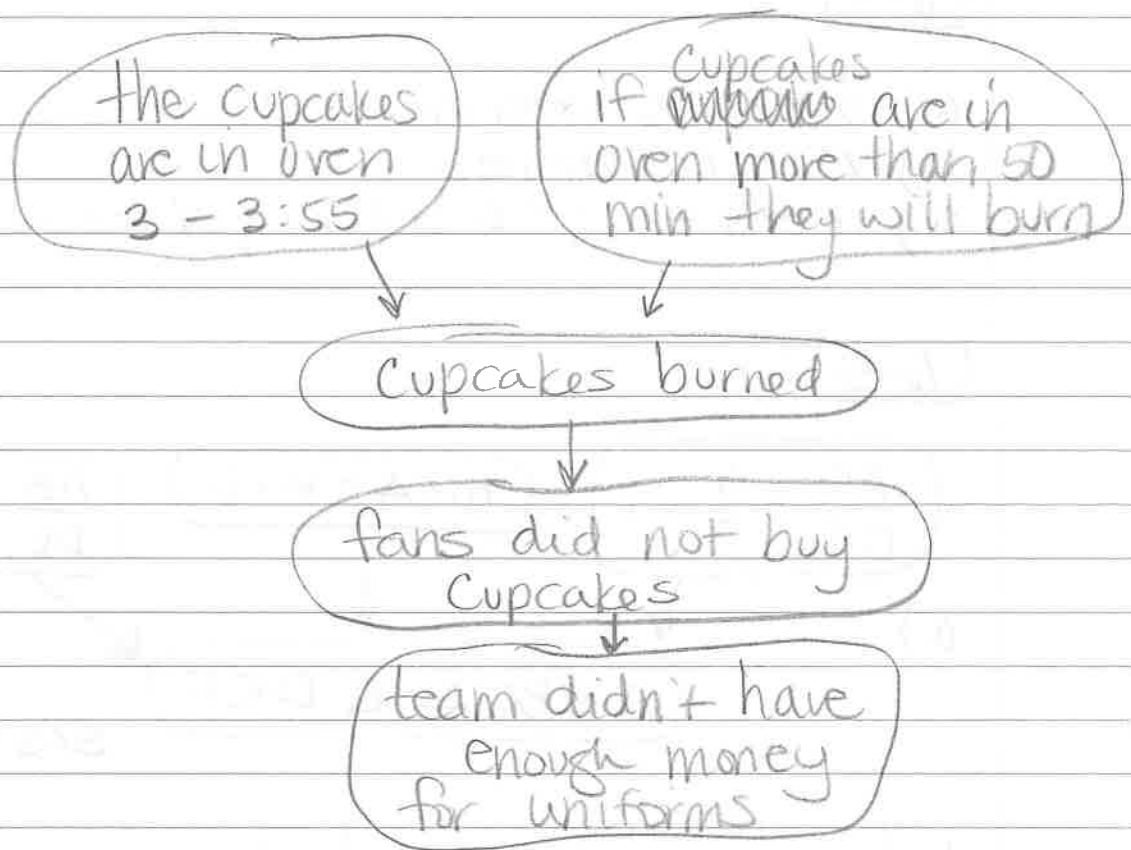 the cupcakes
are in oven
3 - 3:55
cupcakes
if are in
oven more than 50
min they will burn
Cupcakes burned
fans did not buy
Cupcakes
team didn't have
enough money
for uniforms